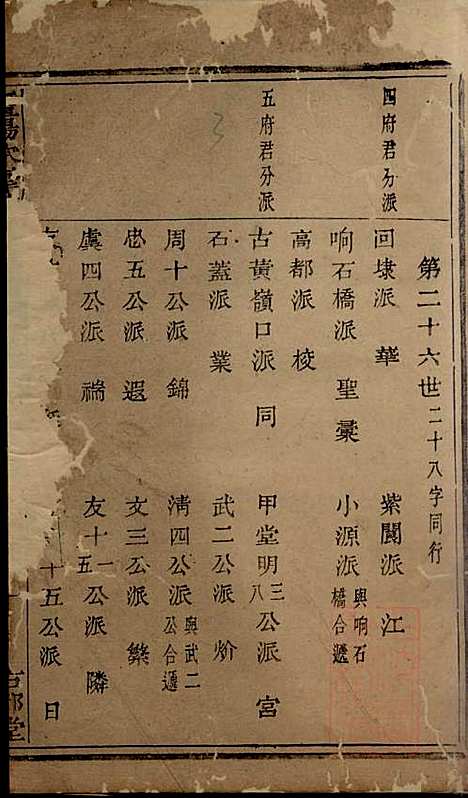 第二十六世二十八字同行
四府君分派
回埭派 華 紫閬派 江
响石橋派 聖彙 小源派 與响石橋合遞
高都派 梭
五府君分派
古黄嶺口派 同 甲堂明三八公派 宮
石蓋派 業 武二公派 炌
周十公派 錦 淸四公派 與武二公合遞
忠五公派 遐 文三公派 繁
虞四公派 瑞 友十一五公派 隣
十五公派 日